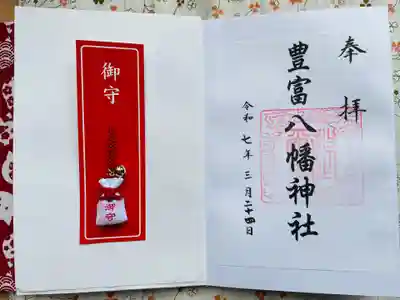 奉拝
豊富八幡神社
令和七年三月二十四日
御守
御守